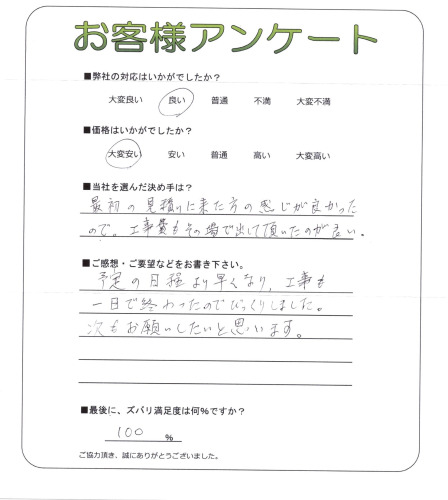 お客様アンケート
■弊社の対応はいかがでしたか？
大変良い 良い 普通 不満 大変不満
■価格はいかがでしたか？
大変安い 安い 普通 高い 大変高い
■当社を選んだ決め手は？
最初の見積りに来た方の感じが良かった
ので。工事費もその場で出して頂いたのが良い。
■ご感想・ご要望などをお書き下さい。
予定の日程より早くなり、工事も
一日で終わったのでびっくりしました。
次もお願いしたいと思います。
■最後に、ズバリ満足度は何％ですか？
100 %
ご協力頂き、誠にありがとうございました。